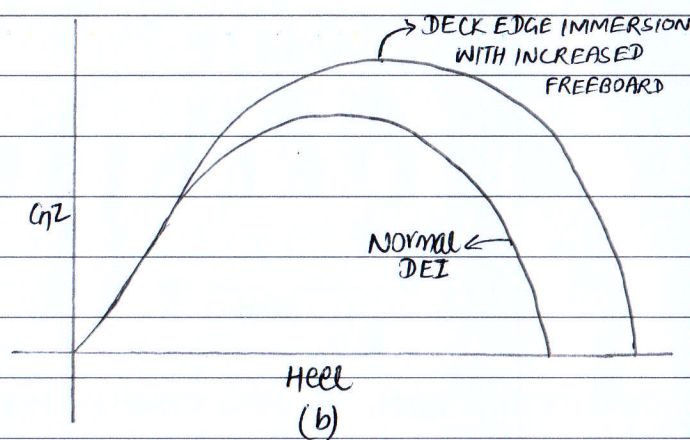 DECK EDGE IMMERSION
WITH INCREASED
FREEBOARD
GZ
NORMAL
DEI
Heel
(b)